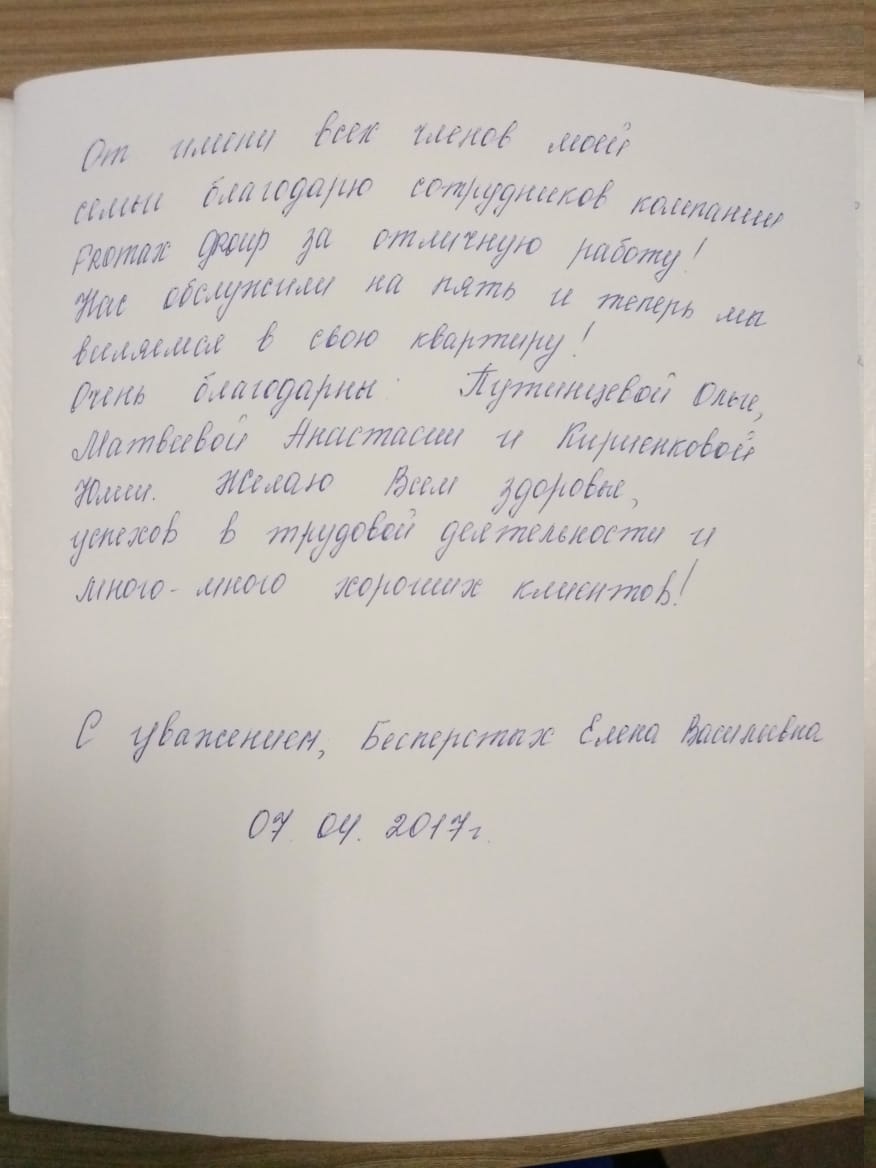 От имени всех членов моей
семьи благодарю сотрудников компании
Promax group за отличную работу!
Нас обслужили на пять и теперь мы
вселяемся в свою квартиру!
Очень благодарны: Пужинцевой Ольге,
Матвеевой Анастасии и Кириенковой
Юлии. Желаю Всем здоровье,
успехов в трудовой деятельности и
много-много хороших клиентов!
С уважением, Бесперстых Елена Васильевна
07. 04. 2017г.